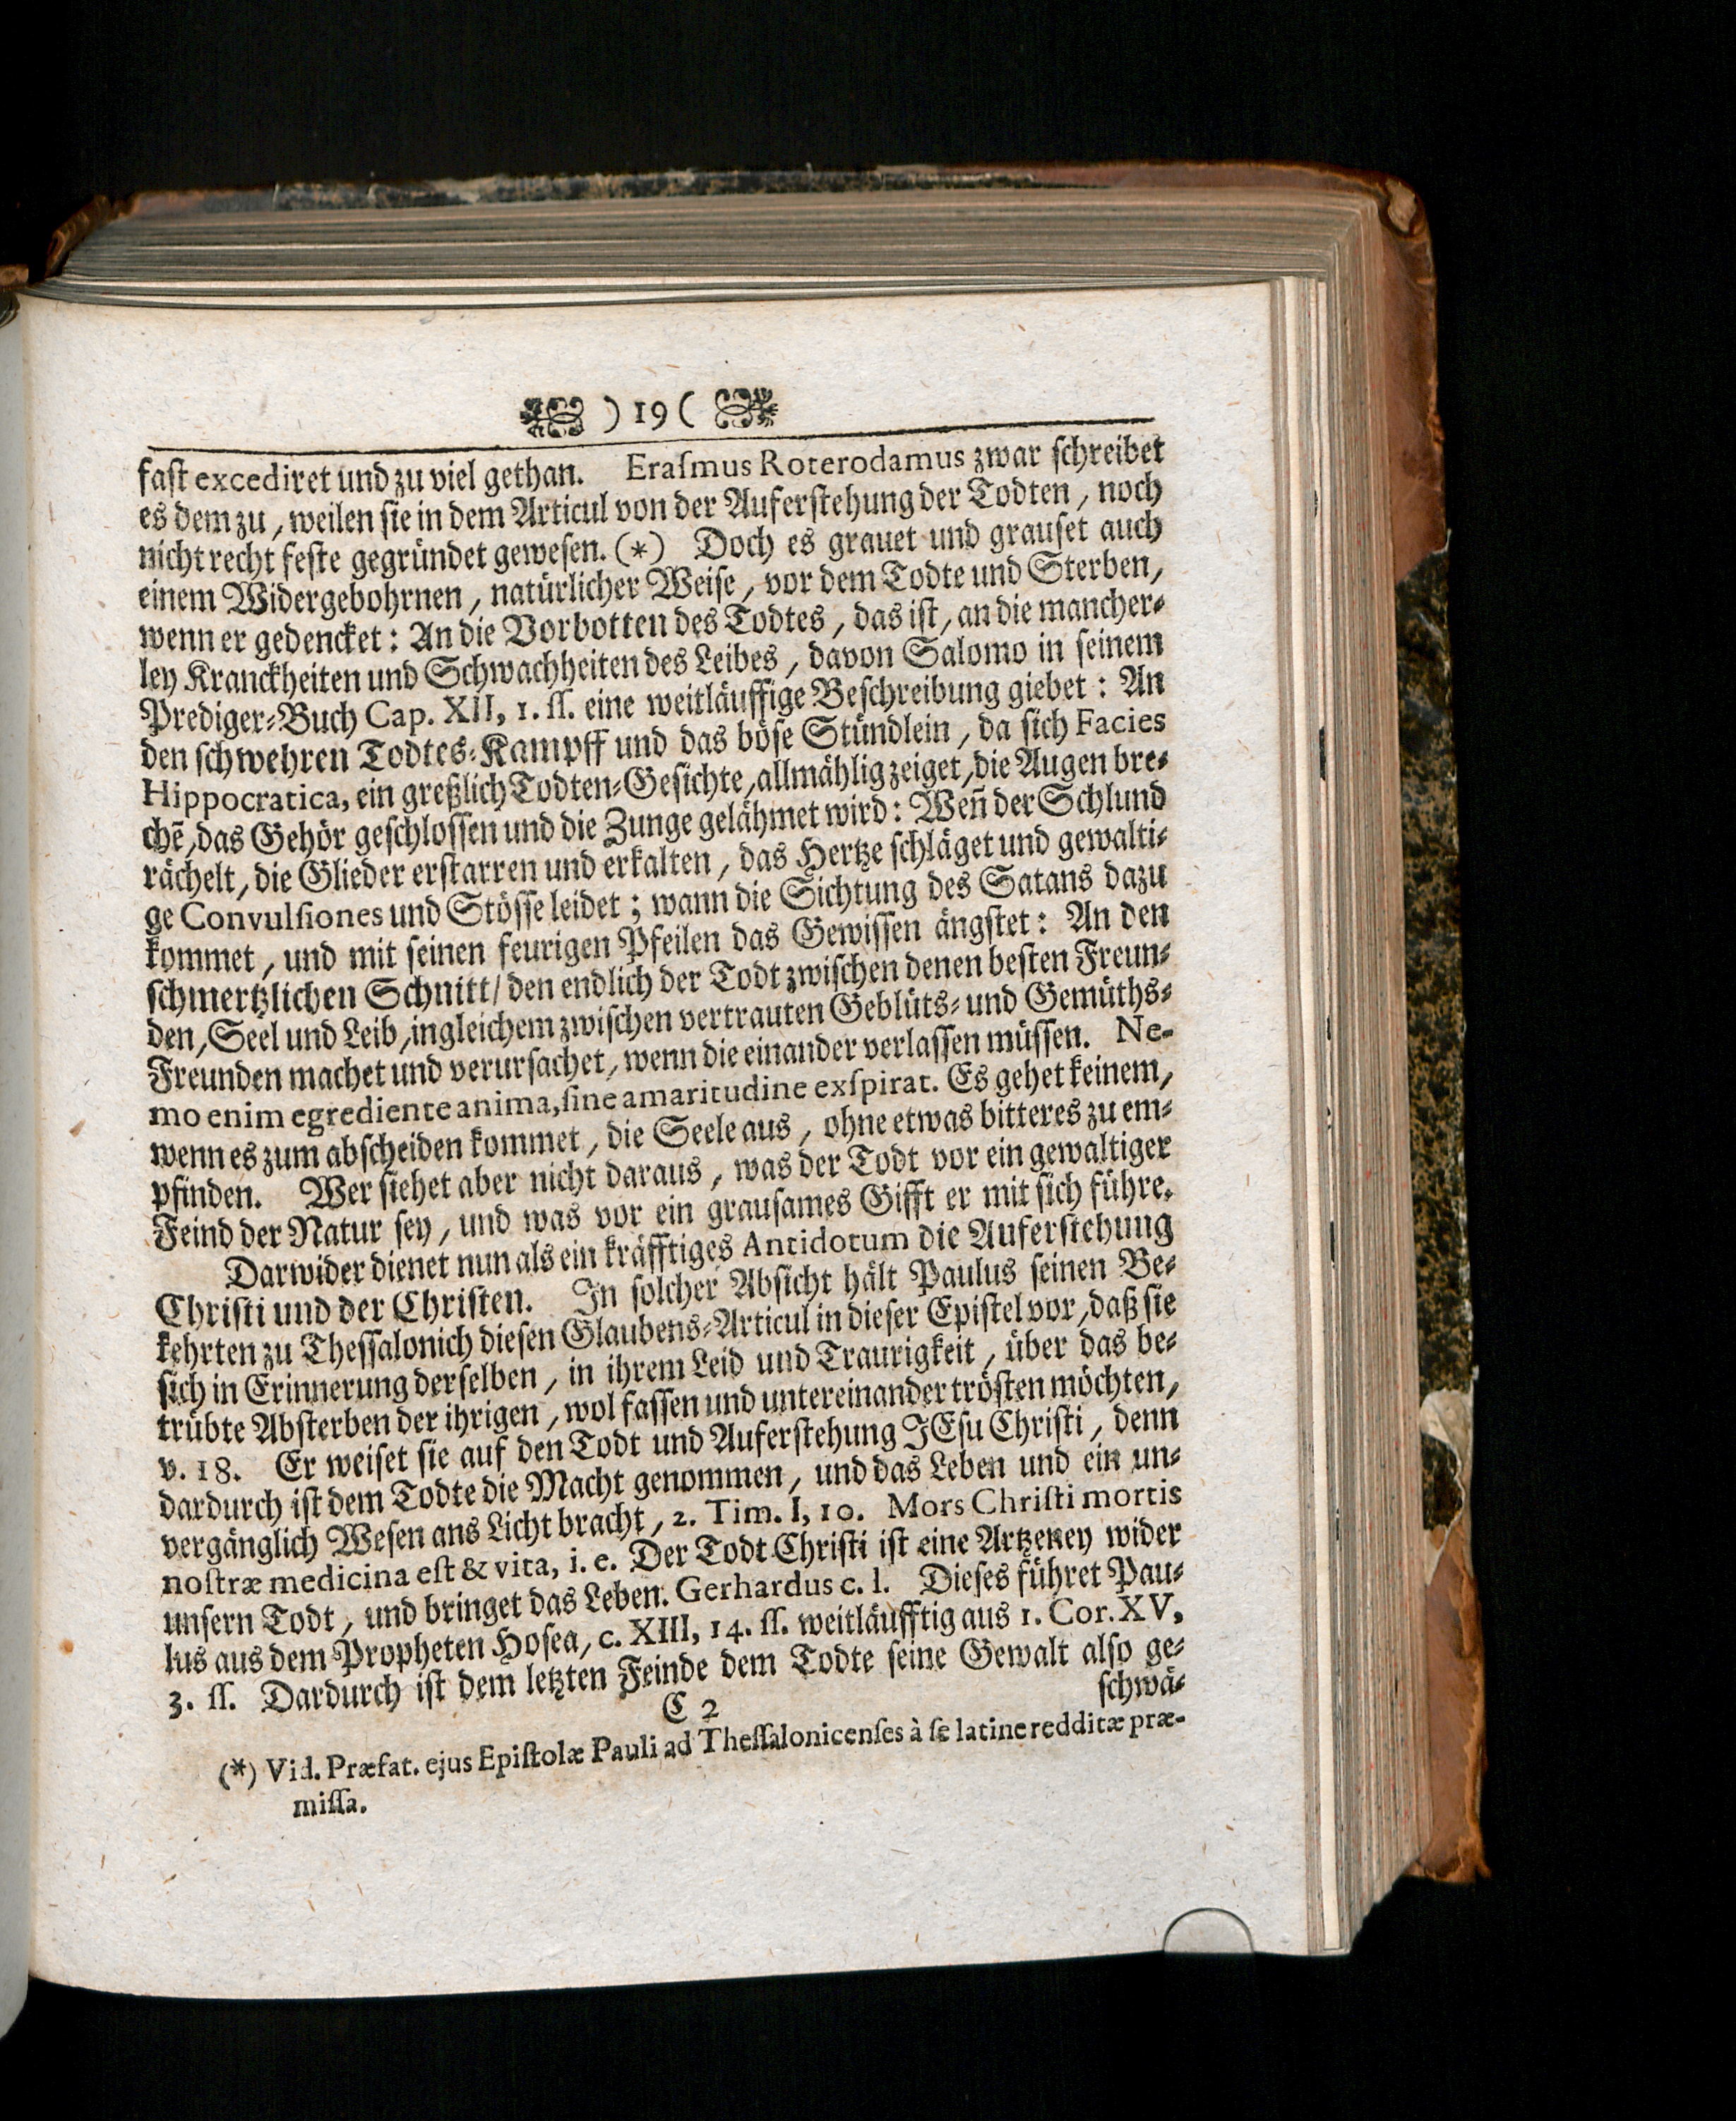 ) 19 (
fast excediret und zu viel gethan. Erasmus Roterodamus zwar schreibet
es dem zu, weilen sie in dem Articul von der Auferstehung der Todten, noch
nicht recht feste gegründet gewesen. (*) Doch es grauet und grauset auch
einem Widergebohrnen, natürlicher Weise, vor dem Todte und Sterben,
wenn er gedencket: An die Vorbotten des Todtes, das ist, an die mancher-
ley Kranckheiten und Schwachheiten des Leibes, davon Salomo in seinem
Prediger-Buch Cap. XII, 1. ss. eine weitläuffige Beschreibung giebet: An
den schwehren Todtes-Kampff und das böse Stündlein, da sich Facies
Hippocratica, ein greßlich Todten-Gesichte, allmählig zeiget, die Augen bre-
chē, das Gehör geschlossen und die Zunge gelähmet wird: Weñ der Schlund
rächelt, die Glieder erstarren und erkalten, das Hertze schläget und gewalti-
ge Convulsiones und Stösse leidet; wann die Sichtung des Satans dazu
kommet, und mit seinen feurigen Pfeilen das Gewissen ängstet: An den
schmertzlichen Schnitt/ den endlich der Todt zwischen denen besten Freun-
den, Seel und Leib, ingleichem zwischen vertrauten Geblüts- und Gemüths-
Freunden machet und verursachet, wenn die einander verlassen müssen. Ne-
mo enim egrediente anima, sine amaritudine exspirat. Es gehet keinem,
wenn es zum abscheiden kommet, die Seele aus, ohne etwas bitteres zu em-
pfinden. Wer siehet aber nicht daraus, was der Todt vor ein gewaltiger
Feind der Natur sey, und was vor ein grausames Gifft er mit sich führe.
Darwider dienet nun als ein kräfftiges Antidotum die Auferstehung
Christi und der Christen. In solcher Absicht hält Paulus seinen Be-
kehrten zu Thessalonich diesen Glaubens-Articul in dieser Epistel vor, daß sie
sich in Erinnerung derselben, in ihrem Leid und Traurigkeit, über das be-
trübte Absterben der ihrigen, wol fassen und untereinander trösten möchten,
v. 18. Er weiset sie auf den Todt und Auferstehung JEsu Christi, denn
dardurch ist dem Todte die Macht genommen, und das Leben und ein un-
vergänglich Wesen ans Licht bracht, 2. Tim. I, 10. Mors Christi mortis
nostræ medicina est & vita, i. e. Der Todt Christi ist eine Artzeney wider
unsern Todt, und bringet das Leben. Gerhardus c. l. Dieses führet Pau-
lus aus dem Propheten Hosea, c. XIII, 14. ss. weitläufftig aus 1. Cor. XV,
3. ss. Dardurch ist dem letzten Feinde dem Todte seine Gewalt also ge-
C 2 schwä-
(*) Vid. Præfat. ejus Epistolæ Pauli ad Thessalonicenses à se latine redditæ præ-
missa.